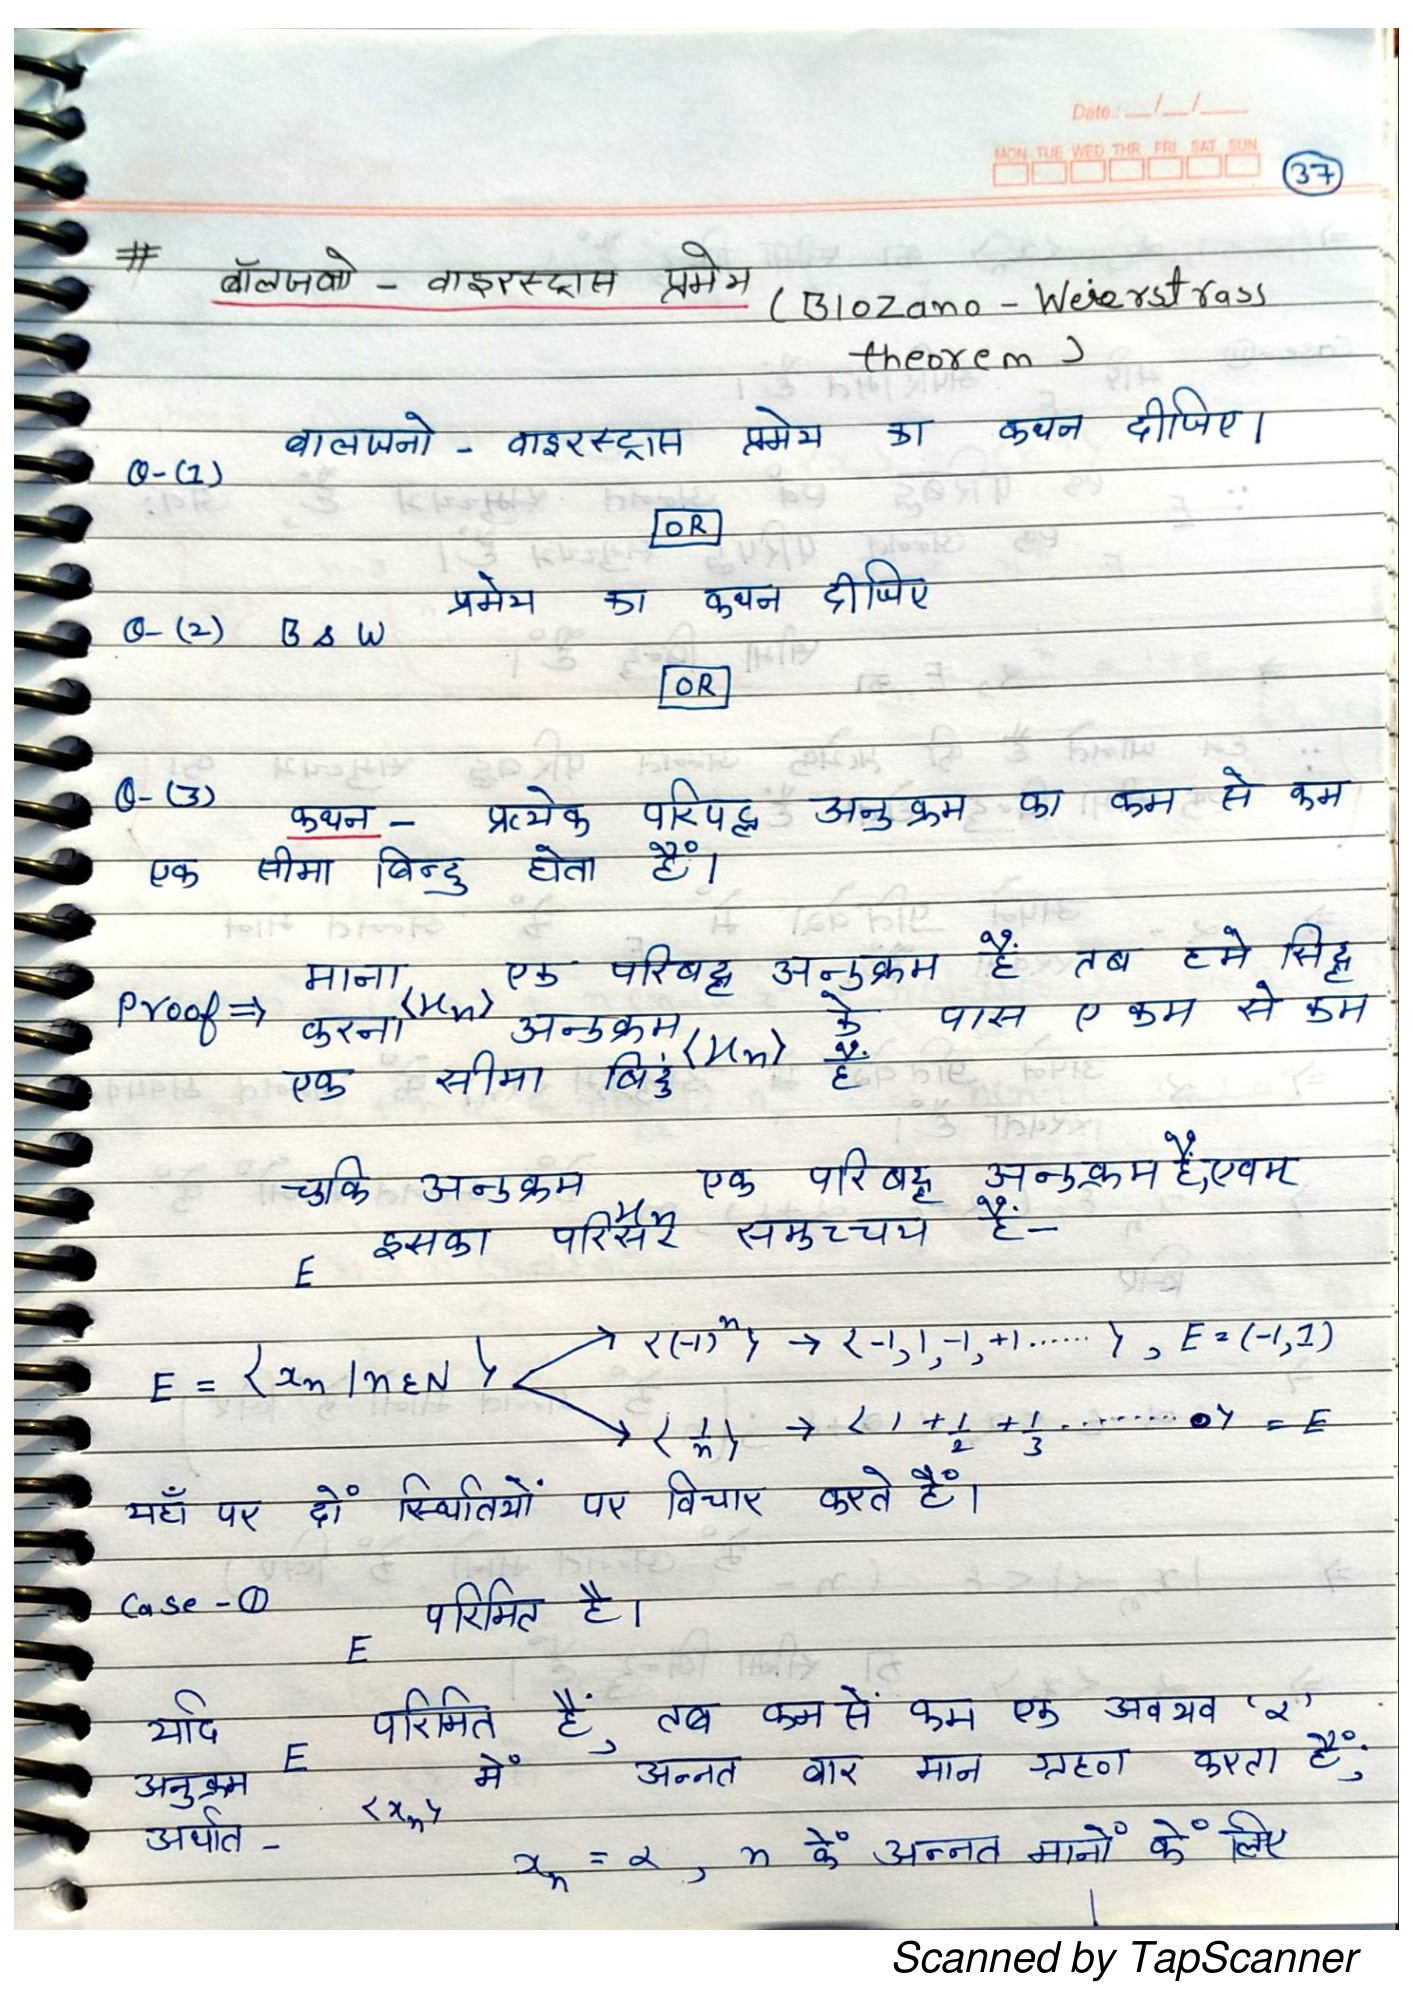 Date.: __/__/___
MON TUE WED THR FRI SAT SUN
37
# बॉलजनो - वाइरस्ट्रास प्रमेय (Blozano - Weierstrass
theorem)
Q-(1) बालजनो - वाइरस्ट्रास प्रमेय का कथन दीजिए।
OR
Q-(2) B & W प्रमेय का कथन दीजिए
OR
Q-(3) कथन - प्रत्येक परिबद्ध अनुक्रम का कम से कम
एक सीमा बिन्दु होता हैं।
Proof ⇒ माना ⟨xn⟩ एक परिबद्ध अनुक्रम हैं तब हमे सिद्ध
करना अनुक्रम ⟨xn⟩ के पास ए कम से कम
एक सीमा बिंदु हैं
चुकि अनुक्रम xn एक परिबद्ध अनुक्रम हैं, एवम्
E इसका परिसर समुच्चय हैं-
E = {xn | n ε N} → <(-1)^n> → <-1, 1, -1, +1 ......>, E = (-1, 1)
→ <1/n> → <1 + 1/2 + 1/3 ........ 0> = E
यहाँ पर दों स्थितियों पर विचार करते हैं।
Case - ① E परिमित है।
यदि E परिमित हैं, तब कम सें कम एक अवयव 'α'
अनुक्रम <xn> में अन्नत बार मान ग्रहण करता हैं;
अर्थात -
xn = α, n कें अन्नत मानों कें लिए
Scanned by TapScanner